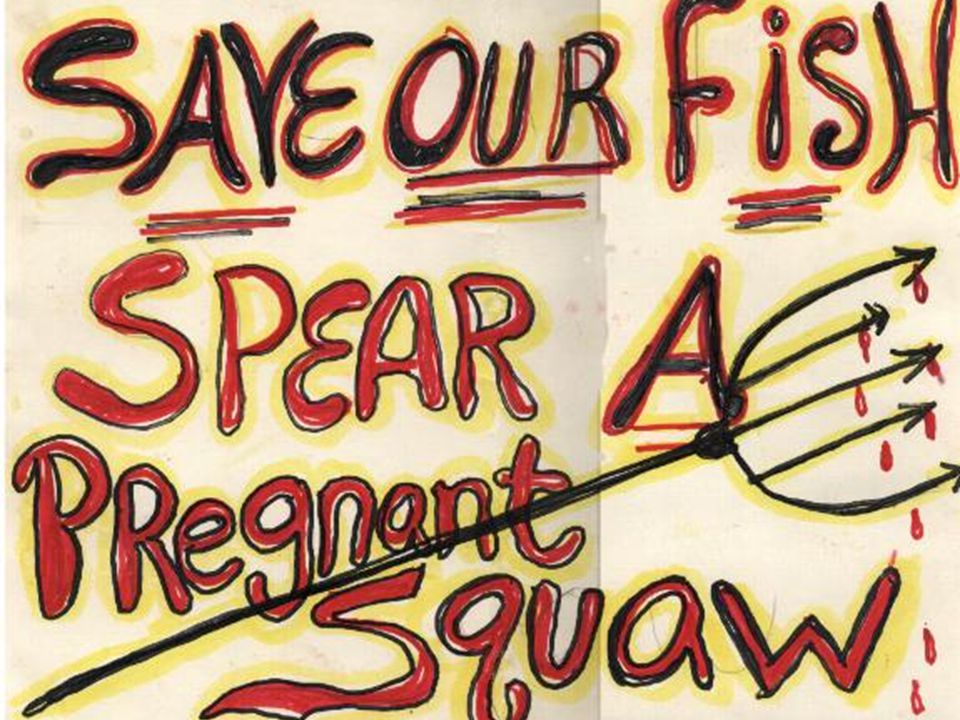 SAVE OUR FiSH
SPEAR A
PRegnant
Squaw